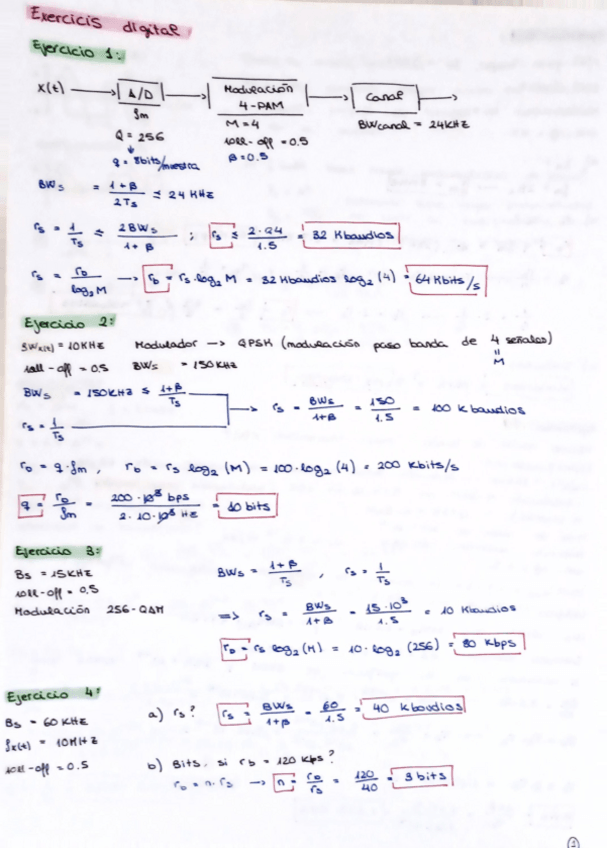 Exercicis digital
Ejercicio 1:
x(t) → A/D → Modulación 4-PAM → Canal →
fm M=4 BWcanal = 24KHz
Q = 256 roll-off = 0.5
q = 8bits/muestra β = 0.5
BWs = (1+β)/(2Ts) ≤ 24 KHz
rs = 1/Ts ≤ 2BWs/(1+β) ; rs ≤ 2·24/1.5 = 32 Kbaudios
rs = rb/log2 M → rb = rs·log2 M = 32 Kbaudios log2(4) = 64 Kbits/s
Ejercicio 2:
BWx(t) = 10KHz Modulador → QPSK (modulación paso banda de 4 señales)
roll-off = 0,5 BWs = 150KHz M
BWs = 150KHz ≤ (1+β)/Ts
rs = 1/Ts → rs = BWs/(1+β) = 150/1.5 = 100 k baudios
rb = q·fm rb = rs log2(M) = 100·log2(4) = 200 Kbits/s
q = rb/fm = 200·10³ bps/2·10·10³ Hz = 10 bits
Ejercicio 3:
Bs = 15KHz BWs = (1+β)/Ts , rs = 1/Ts
roll-off = 0,5
Modulación 256-QAM ⇒ rs = BWs/(1+β) = 15·10³/1.5 = 10 Kbaudios
rb = rs log2(M) = 10·log2(256) = 80 Kbps
Ejercicio 4:
Bs = 60 KHz a) rs? rs = BWs/(1+β) = 60/1.5 = 40 kbaudios
fx(t) = 10KHz
roll-off = 0.5 b) Bits, si rb = 120 Kbps?
rb = n·rs → n = rb/rs = 120/40 = 3 bits
1